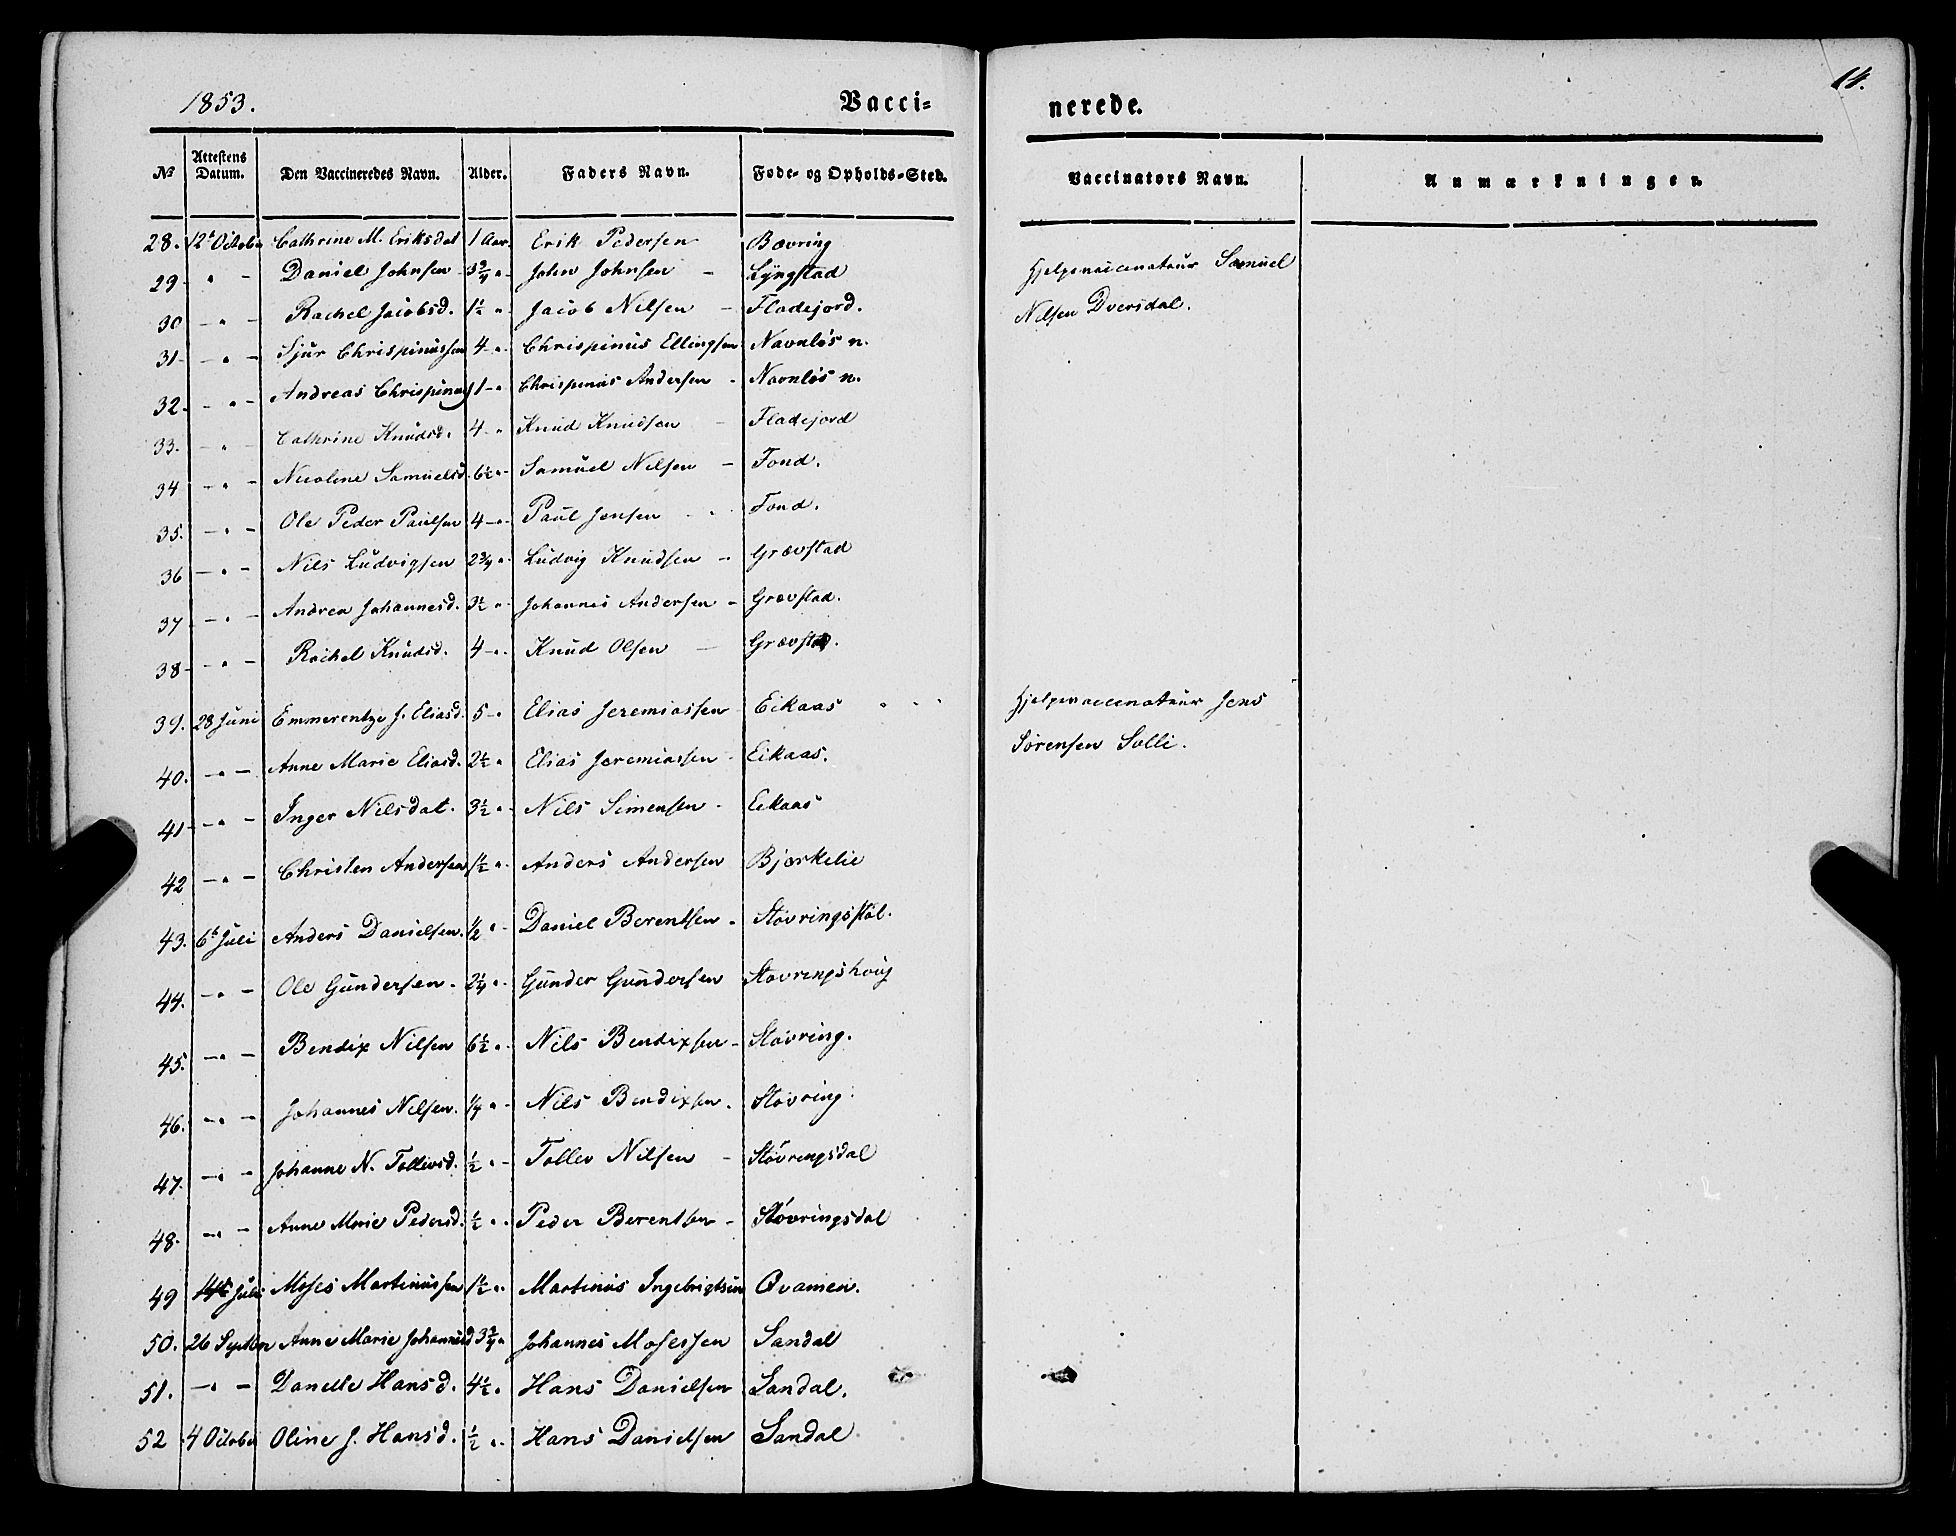 1853.
Vacci= nerede.
14.
No Attestens Datum. Den Vaccineredes Navn. Alder. Faders Navn. Føde- og Opholds-Sted. Vaccinators Navn. Anmærkninger.
28. 12t Octobr Cathrine M. Eriksdat 1 Aar. Erik Pedersen Bævring
29 " - Daniel Johnsen 3 3/4 " John Johnsen - Lyngstad Hjelpevaccinateur Samuel
30 - " - Rachel Jacobsd. 1 1/2 " Jacob Nilsen - Fladejord. Nilsen Dversdal.
31 - " - Sjur Chrispinussen 4 - " Chrispinus Ellingsen Navnløs n.
32. - " - Andreas Chrispinus 11 - " Chrispinus Andersen - Navnløs n.
33. - " - Cathrine Knudsd. 4 - " Knud Knudsen - Fladejord
34 - " - Nicoline Samuelsd. 6 1/2 " Samuel Nilsen - Fond.
35. - " - Ole Peder Paulsen 4 - " Paul Jensen - Fond.
36 - " - Nils Ludvigsen 2 3/4 " Ludvig Knudsen - Grævstad
37 - " - Andrea Johannesd. 3 1/2 " Johannes Andersen - Grævstad.
38 - " - Rachel Knudsd. 4 - " Knud Olsen - Grævstad.
39. 28 Juni Emmerentze J. Eliasd. 5 - " Elias Jeremiassen Eikaas Hjelpevaccinateur Jens
40. - " - Anne Marie Eliasd. 2 1/2 " Elias Jeremiassen - Eikaas. Sørensen Solli.
41 - " - Inger Nilsdat. 3 1/2 " Nils Simensen - Eikaas
42 - " - Christen Andersen 1 1/2 " Anders Andersen Bjørkelie
43. 6t Juli Anders Danielsen. 1/2 " Daniel Berentsen - Støvringsstøl.
44. - " - Ole Gundersen. 2 1/4 " Gunder Gundersen Støvringshoug
45. - " - Bendix Nilsen 6 1/2 " Nils Bendixsen - Støvring.
46. - " - Johannes Nilsen. 1/4 " Nils Bendixsen. Støvring.
47. - " - Johanne N. Tollevsd. 1/2 " Tollev Nilsen - Støvringsdal
48. - " - Anne Marie Pedersd. 1/2 " Peder Berentsen - Støvringsdal
49 Juli Moses Martinussen 1 1/2 " Martinus Ingebrigtsen Qvamen.
50. 26 Septbr Anne Marie Johannesd 3 3/4 " Johannes Mosessen Sandal
51. - " - Danelle Hansd. 4 1/2 " Hans Danielsen Sandal.
52 4 Octobr Oline J. Hansd. 1/2 " Hans Danielsen Sandal